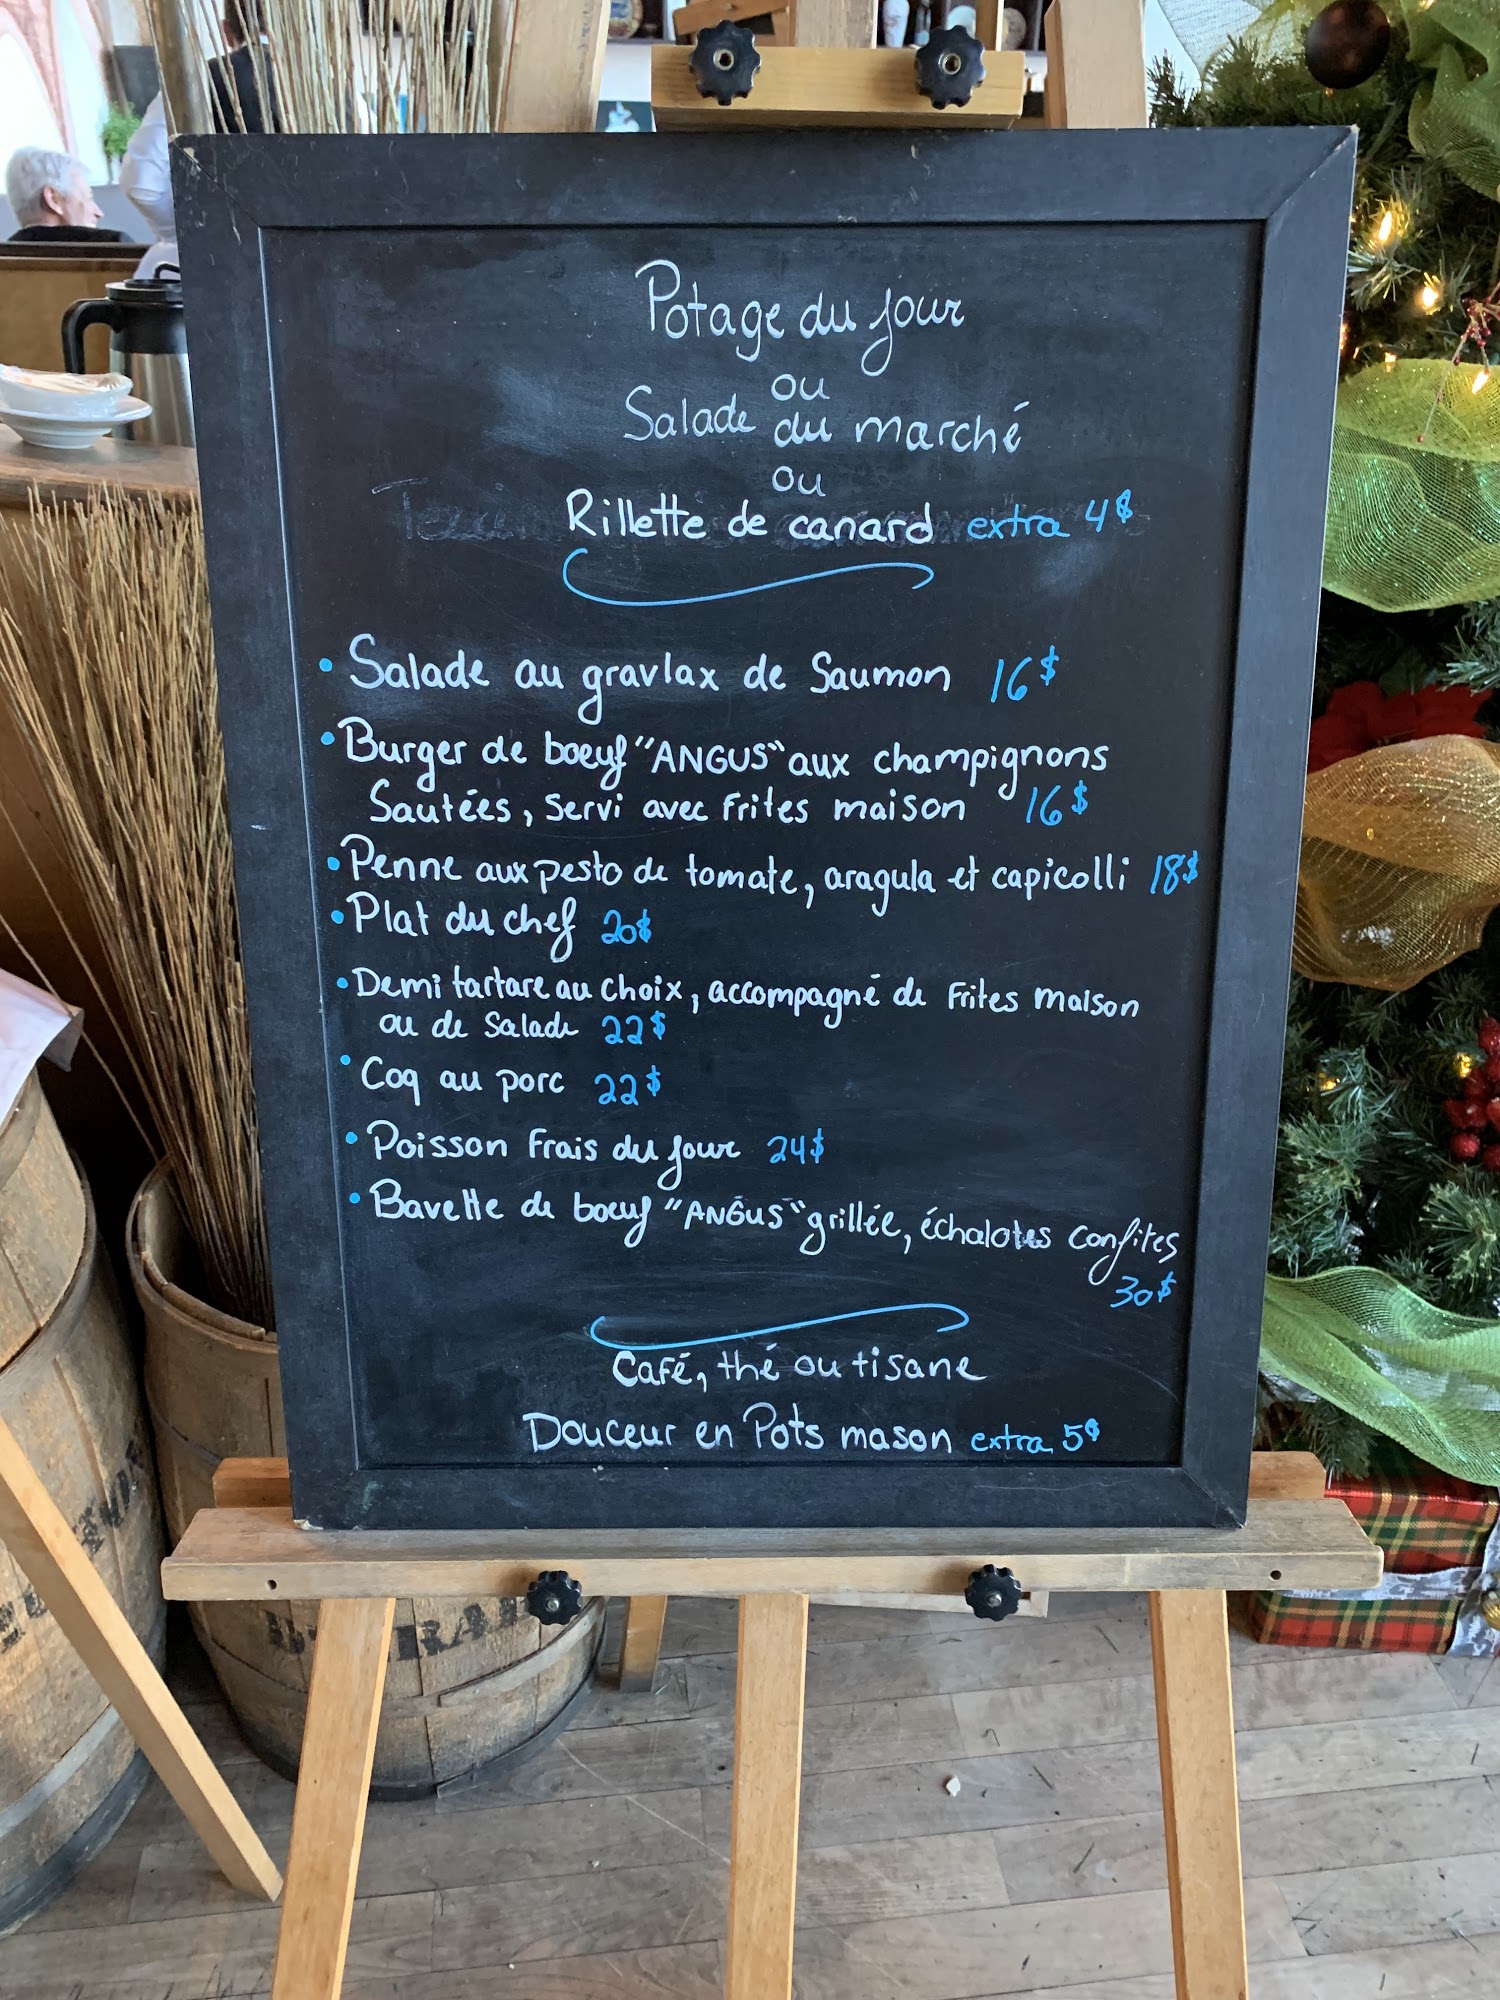 Potage du jour
ou
Salade du marché
ou
Rillette de canard extra 4$
• Salade au gravlax de Saumon 16$
• Burger de boeuf "ANGUS" aux champignons
Sautées, Servi avec frites maison 16$
• Penne aux pesto de tomate, aragula et capicolli 18$
• Plat du chef 20$
• Demi tartare au choix, accompagné de frites maison
ou de Salade 22$
• Coq au porc 22$
• Poisson Frais du jour 24$
• Bavette de boeuf "ANGUS" grillée, échalotes confites
30$
Café, thé ou tisane
Douceur en Pots mason extra 5$